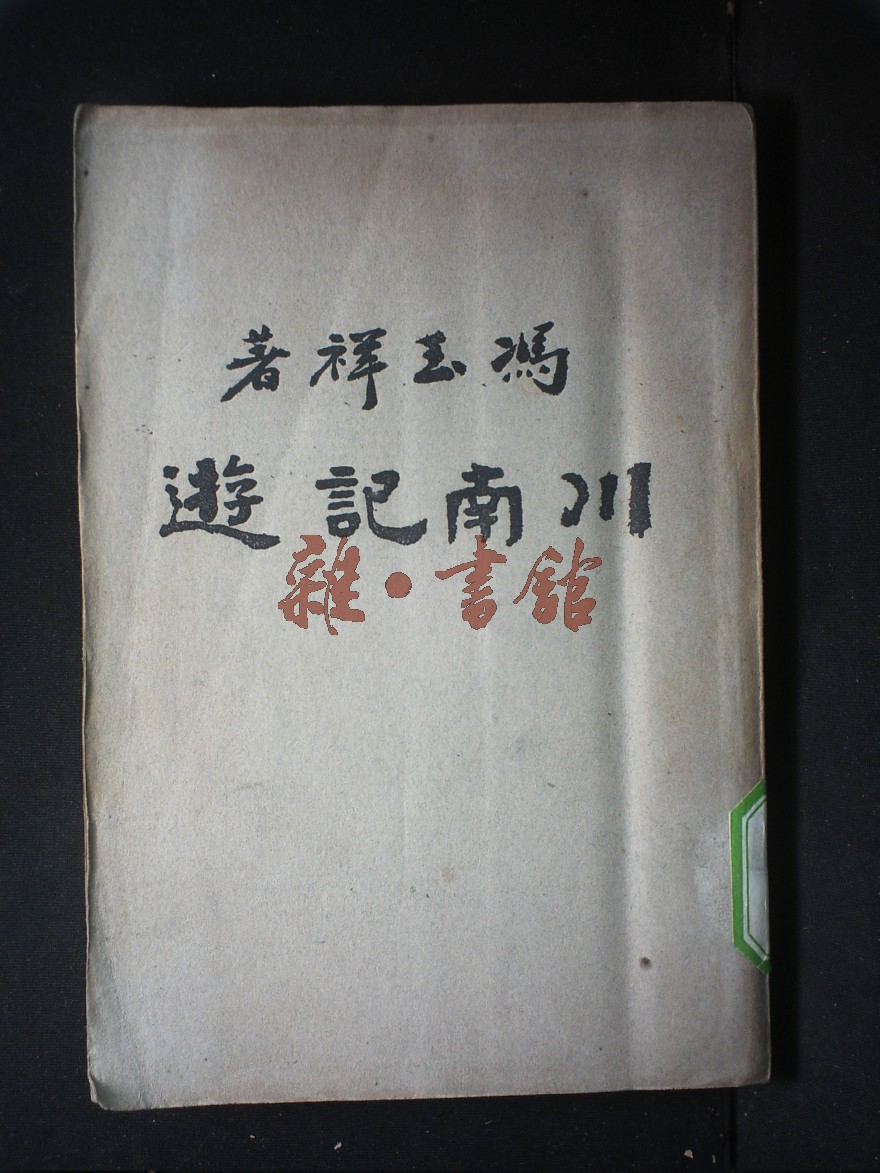 馮玉祥著
川南記遊
雜·書館